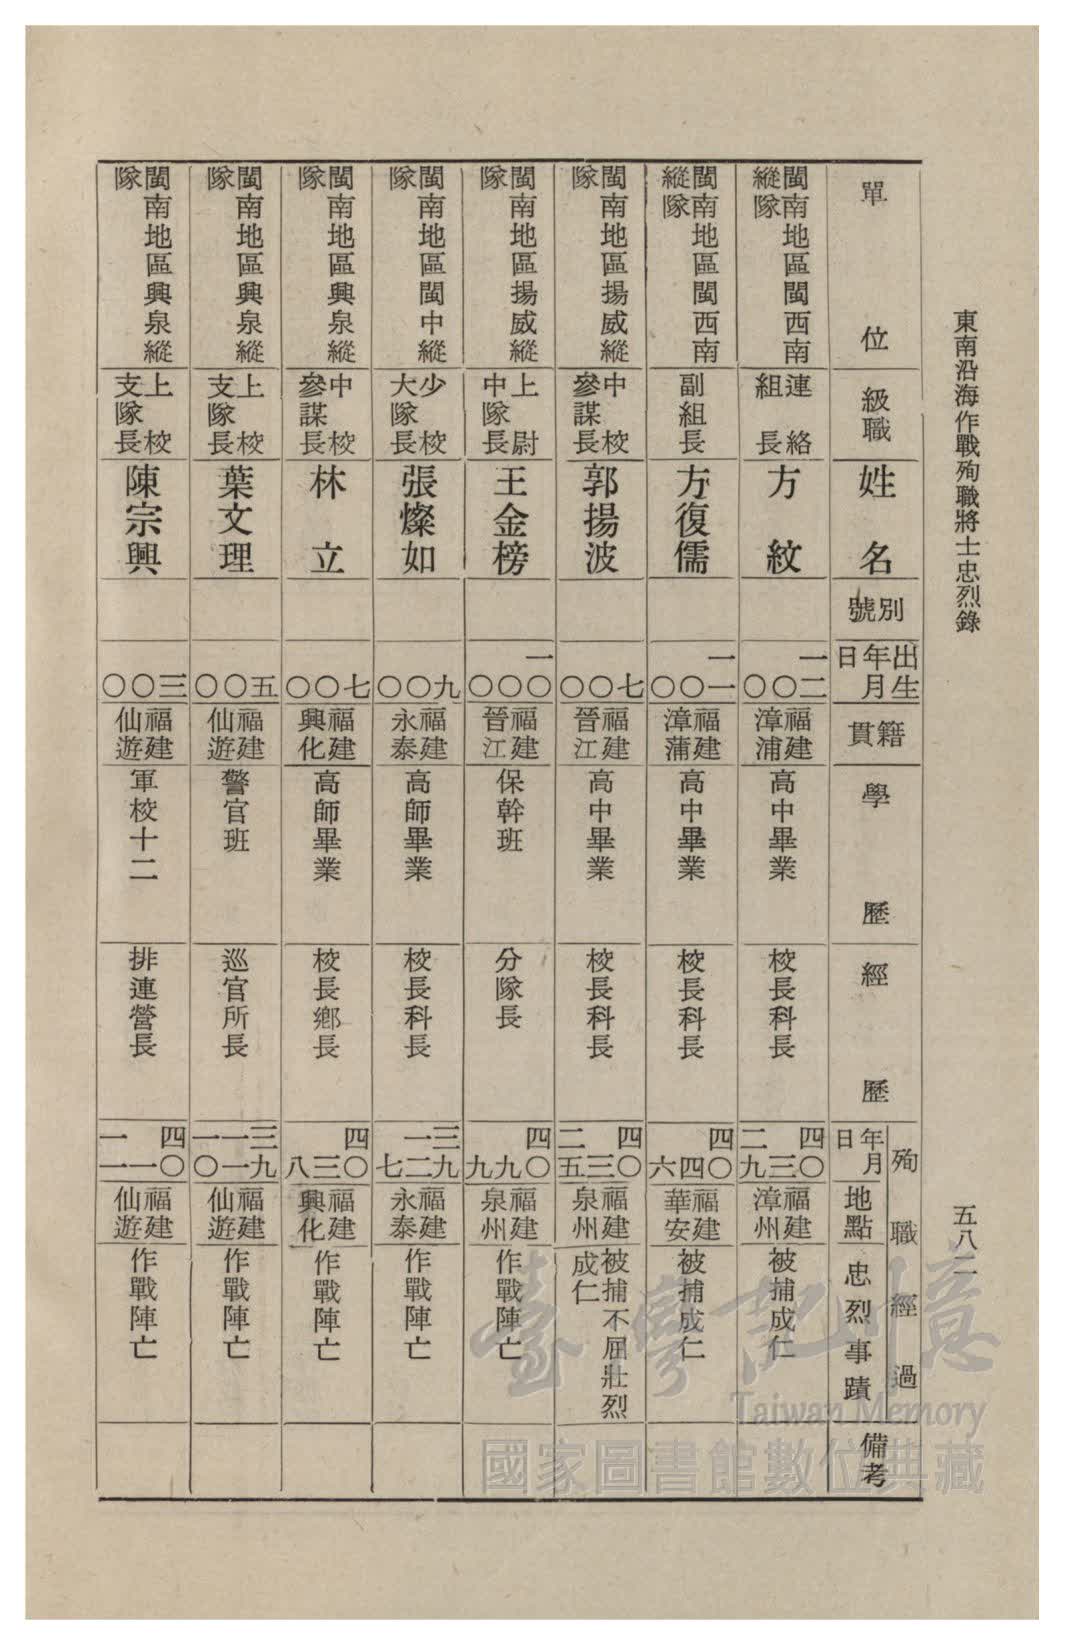 東南沿海作戰殉職將士忠烈錄
五八二
單位
級職
姓名
別號
出生年月日
籍貫
學歷
經歷
殉職經過
年月日
地點
忠烈事蹟
備考
閩南地區閩西南
縱隊
連絡
組長
方紋
一二
〇
〇
福建
漳浦
高中畢業
校長科長
四〇
三
二九
福建
漳州
被捕成仁
閩南地區閩西南
縱隊
副組長
方復儒
一一
〇
〇
福建
漳蒲
高中畢業
校長科長
四〇
四
六
福建
華安
被捕成仁
閩南地區揚威縱
隊
中校
參謀長
郭揚波
七
〇
〇
福建
晉江
高中畢業
校長科長
四〇
三
二五
福建
泉州
被捕不屈壯烈
成仁
閩南地區揚威縱
隊
上尉
中隊長
王金榜
一〇
〇
〇
福建
晉江
保幹班
分隊長
四〇
九
九
福建
泉州
作戰陣亡
閩南地區閩中縱
隊
少校
大隊長
張燦如
九
〇
〇
福建
永泰
高師畢業
校長科長
三九
一二
七
福建
永泰
作戰陣亡
閩南地區興泉縱
隊
中校
參謀長
林立
七
〇
〇
福建
興化
高師畢業
校長鄉長
四〇
三
八
福建
興化
作戰陣亡
閩南地區興泉縱
隊
上校
支隊長
葉文理
五
〇
〇
福建
仙遊
警官班
巡官所長
三九
一一
一〇
福建
仙遊
作戰陣亡
閩南地區興泉縱
隊
上校
支隊長
陳宗興
三
〇
〇
福建
仙遊
軍校十二
排連營長
四〇
一
一一
福建
仙遊
作戰陣亡
臺灣記憶
Taiwan Memory
國家圖書館數位典藏